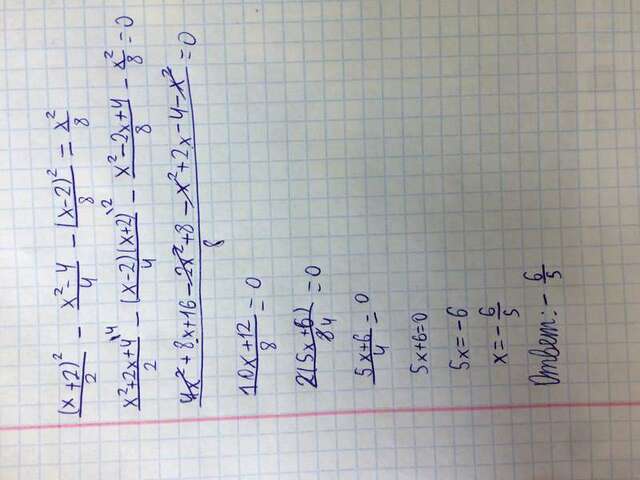 (x+2)²/2 - x²-4/4 - (x-2)²/8 = x²/8
x²+2x+4\4/2 - (x-2)(x+2)\2/4 - x²-2x+4/8 - x²/8 = 0
4x²+8x+16-2x²+8-x²+2x-4-x²/8 = 0
10x+12/8 = 0
2(5x+6)/84 = 0
5x+6/4 = 0
5x+6=0
5x=-6
x=-6/5
Ответ: -6/5